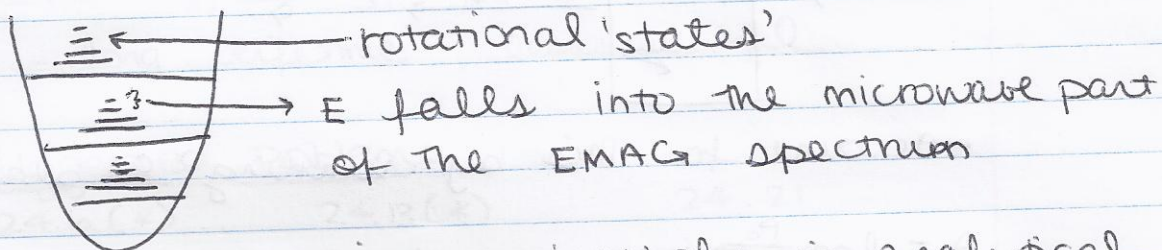 rotational 'states'
E falls into the microwave part
of the EMAG spectrum
in analytical